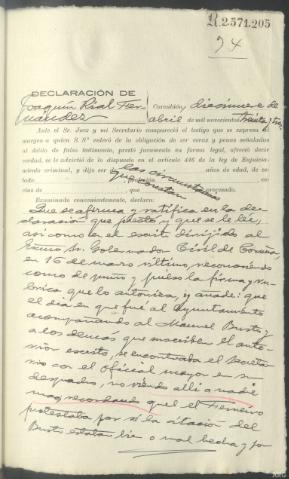 R.2571.205
94
DECLARACIÓN DE
Joaquín Rial Fer-
nández
Corcubión, diecinueve de
abril de mil novecientos treinta y
Ante el Sr. Juez y mi Secretario compareció el testigo que se expresa al
margen a quien S. Sª enteró de la obligación de ser veraz y penas señaladas
al delito de falso testimonio, prestó juramento en forma legal, ofreció decir
verdad, se le advirtió de lo dispuesto en el artículo 446 de la ley de Enjuicia-
miento criminal, y dijo ser las circunstancias años de edad, de es-
tado que constan
cias de que procesado.
Examinado convenientemente, declara:
Que se afirma y ratifica en la de-
claración que prestó y que se le lee,
así como en el escrito dirigido al
Excmo Sr. Gobernador Civil de Coruña
en 16 de marzo último, reconociendo
como de puño y pulso la firma y rú-
brica que lo autoriza, y añade: que
el día en que fué al Ayuntamiento
acompañando al Manuel Busto y
a los demás que suscriben el ante-
rior escrito, se encontraba el Secreta-
rio con el oficial mayor en su
despacho, no viendo allí a nadie
mas, recordando que el
protestaba por si la citación del
Busto estaba bien o mal hecha y por